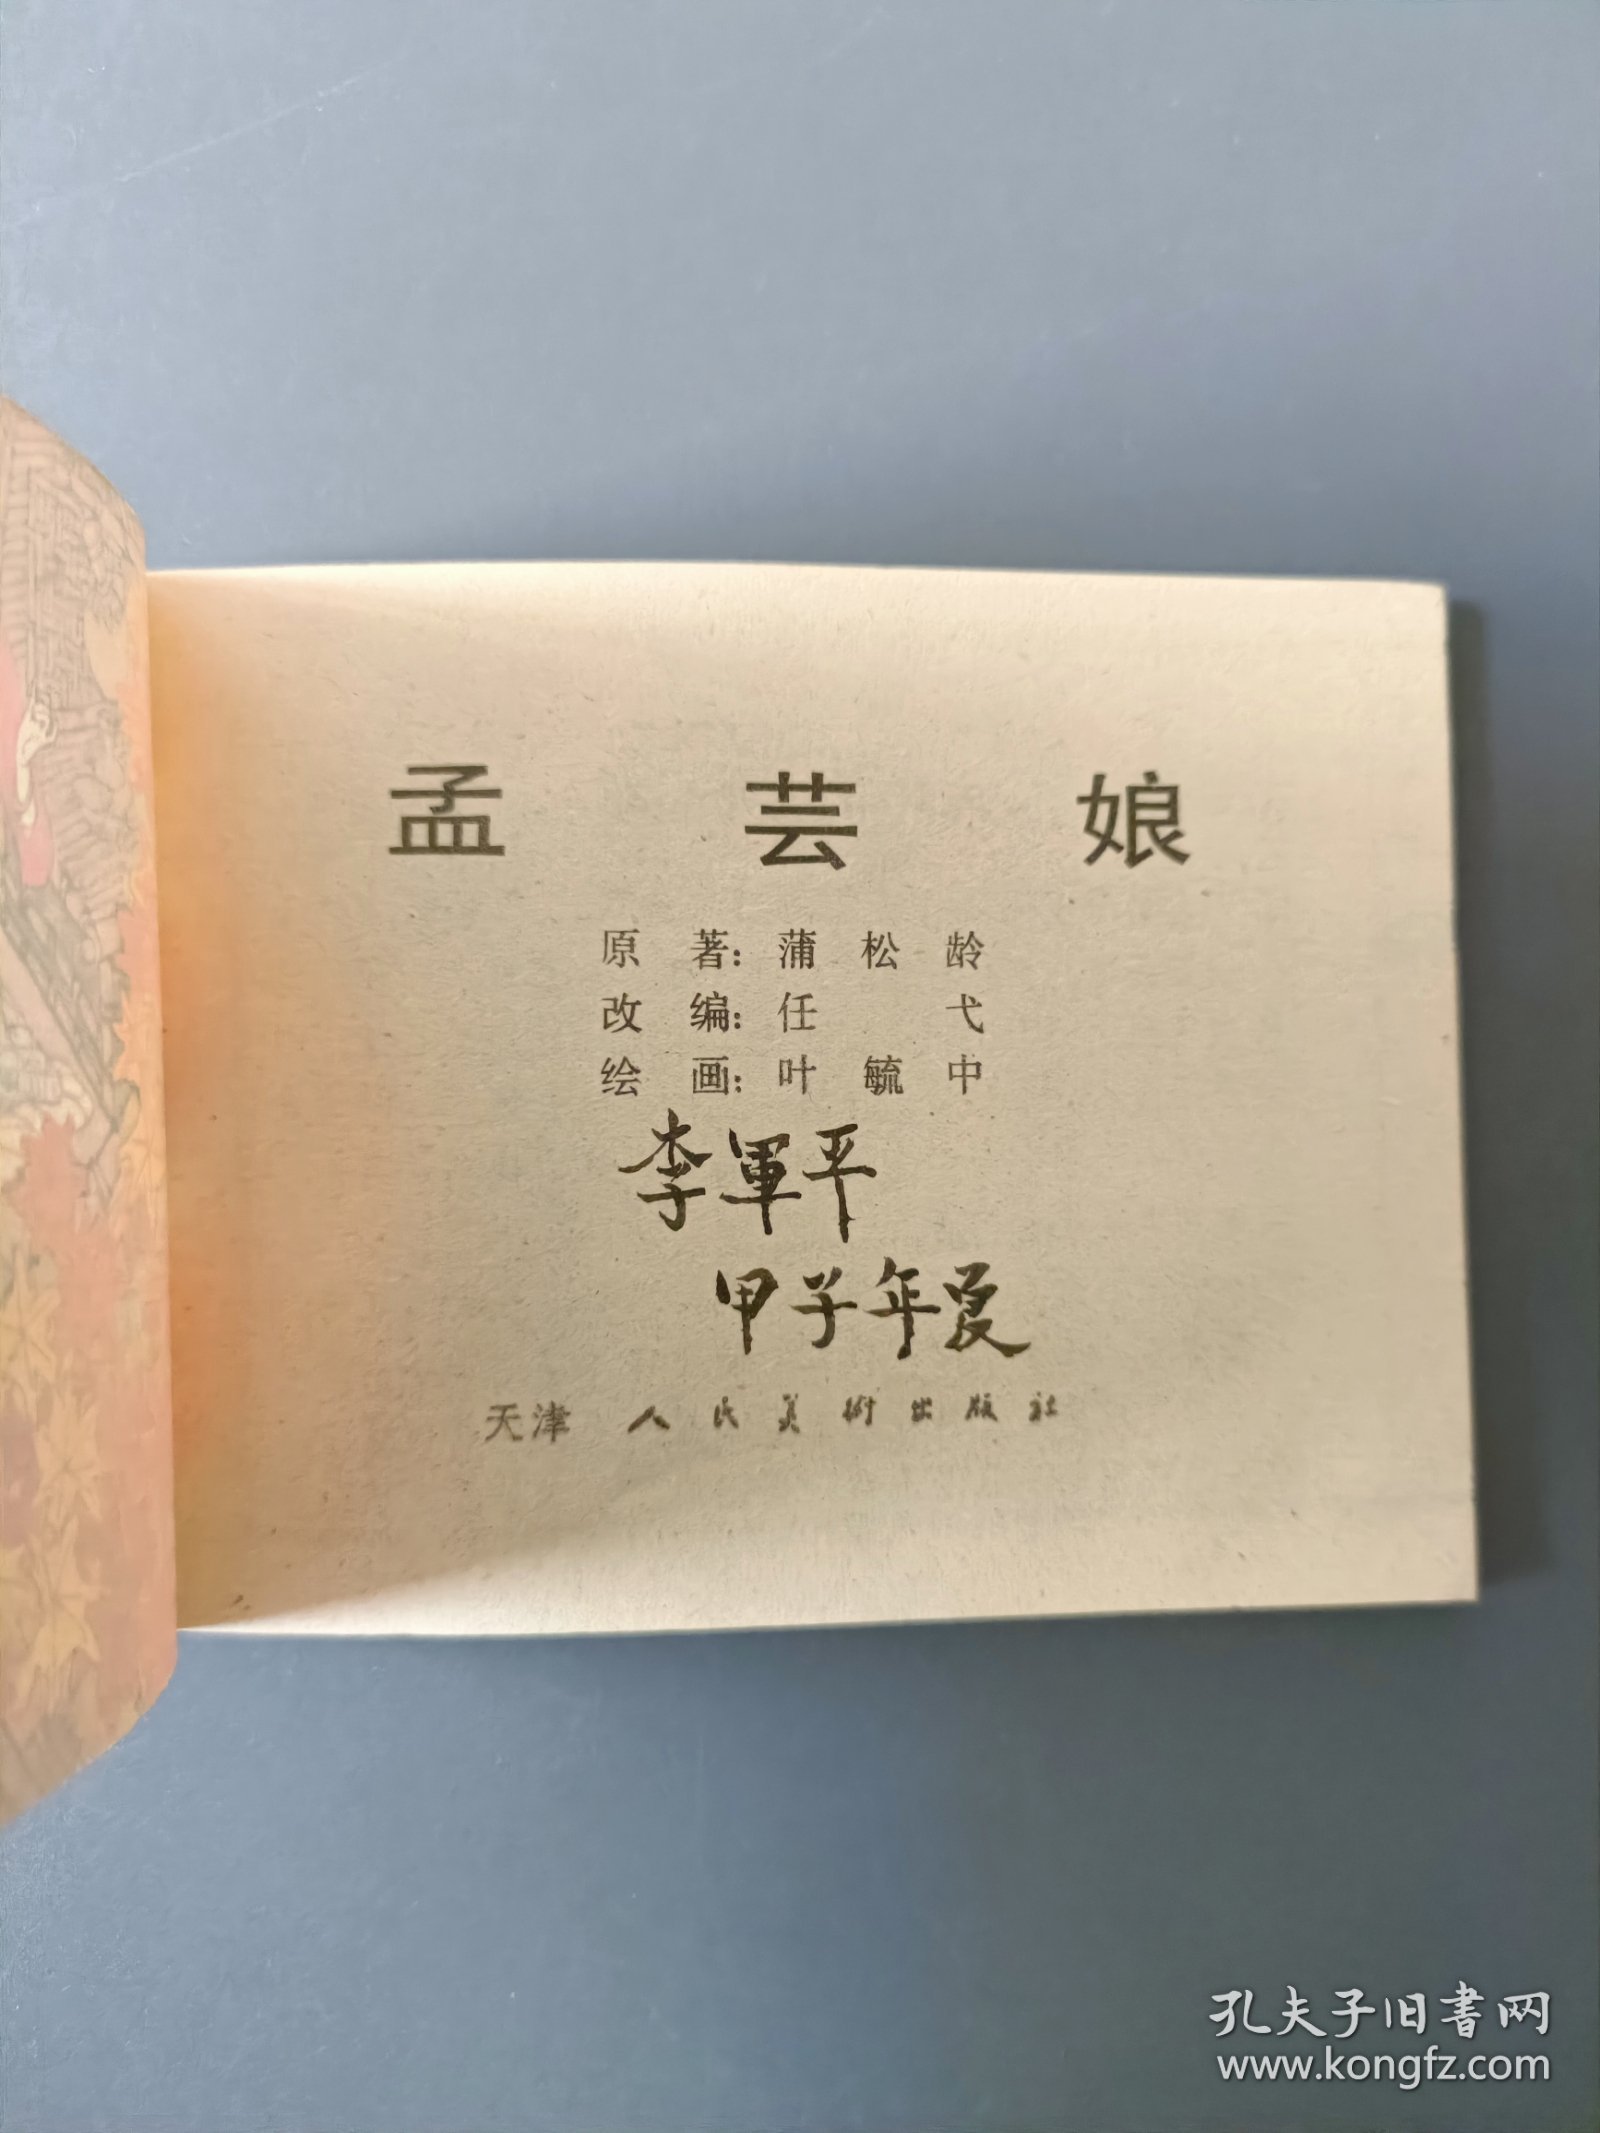 孟芸娘
原著：蒲松龄
改编：任弋
绘画：叶毓中
李軍平
甲子年夏
天津人民美術出版社
孔夫子旧書网
www.kongfz.com